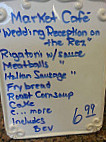 Market Café
"Wedding Reception on
the Rez"
Rigatoni w/ sauce
Meatballs "
Italian Sausage "
Fry bread
Roast Corn Soup
Cake
& ... more
Includes
Bev
6.99